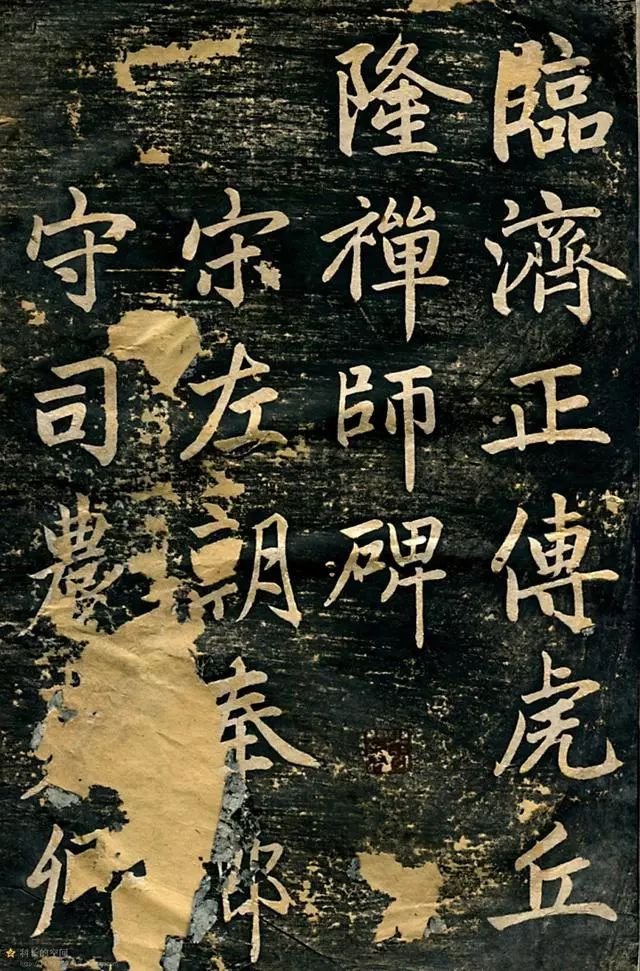 臨濟正傳虎丘
隆禪師碑
宋左朝奉郎
守司農卿